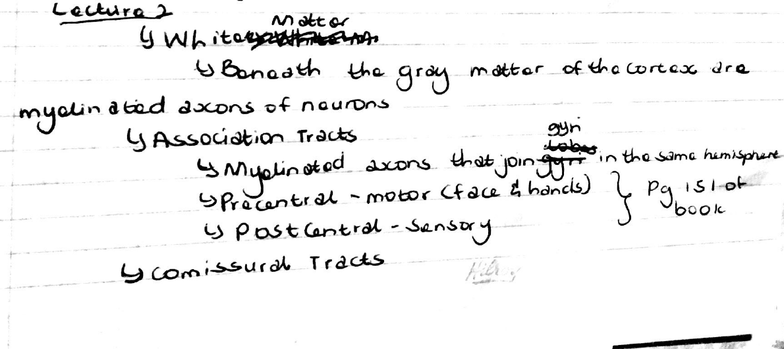 Lecture 2
↳ White Matter
↳ Beneath the gray matter of the cortex are
myelinated axons of neurons
↳ Association Tracts
↳ Myelinated axons that join gyri in the same hemisphere
↳ Precentral - motor (face & hands) } Pg 151 of
↳ Postcentral - sensory book
↳ Comissural Tracts